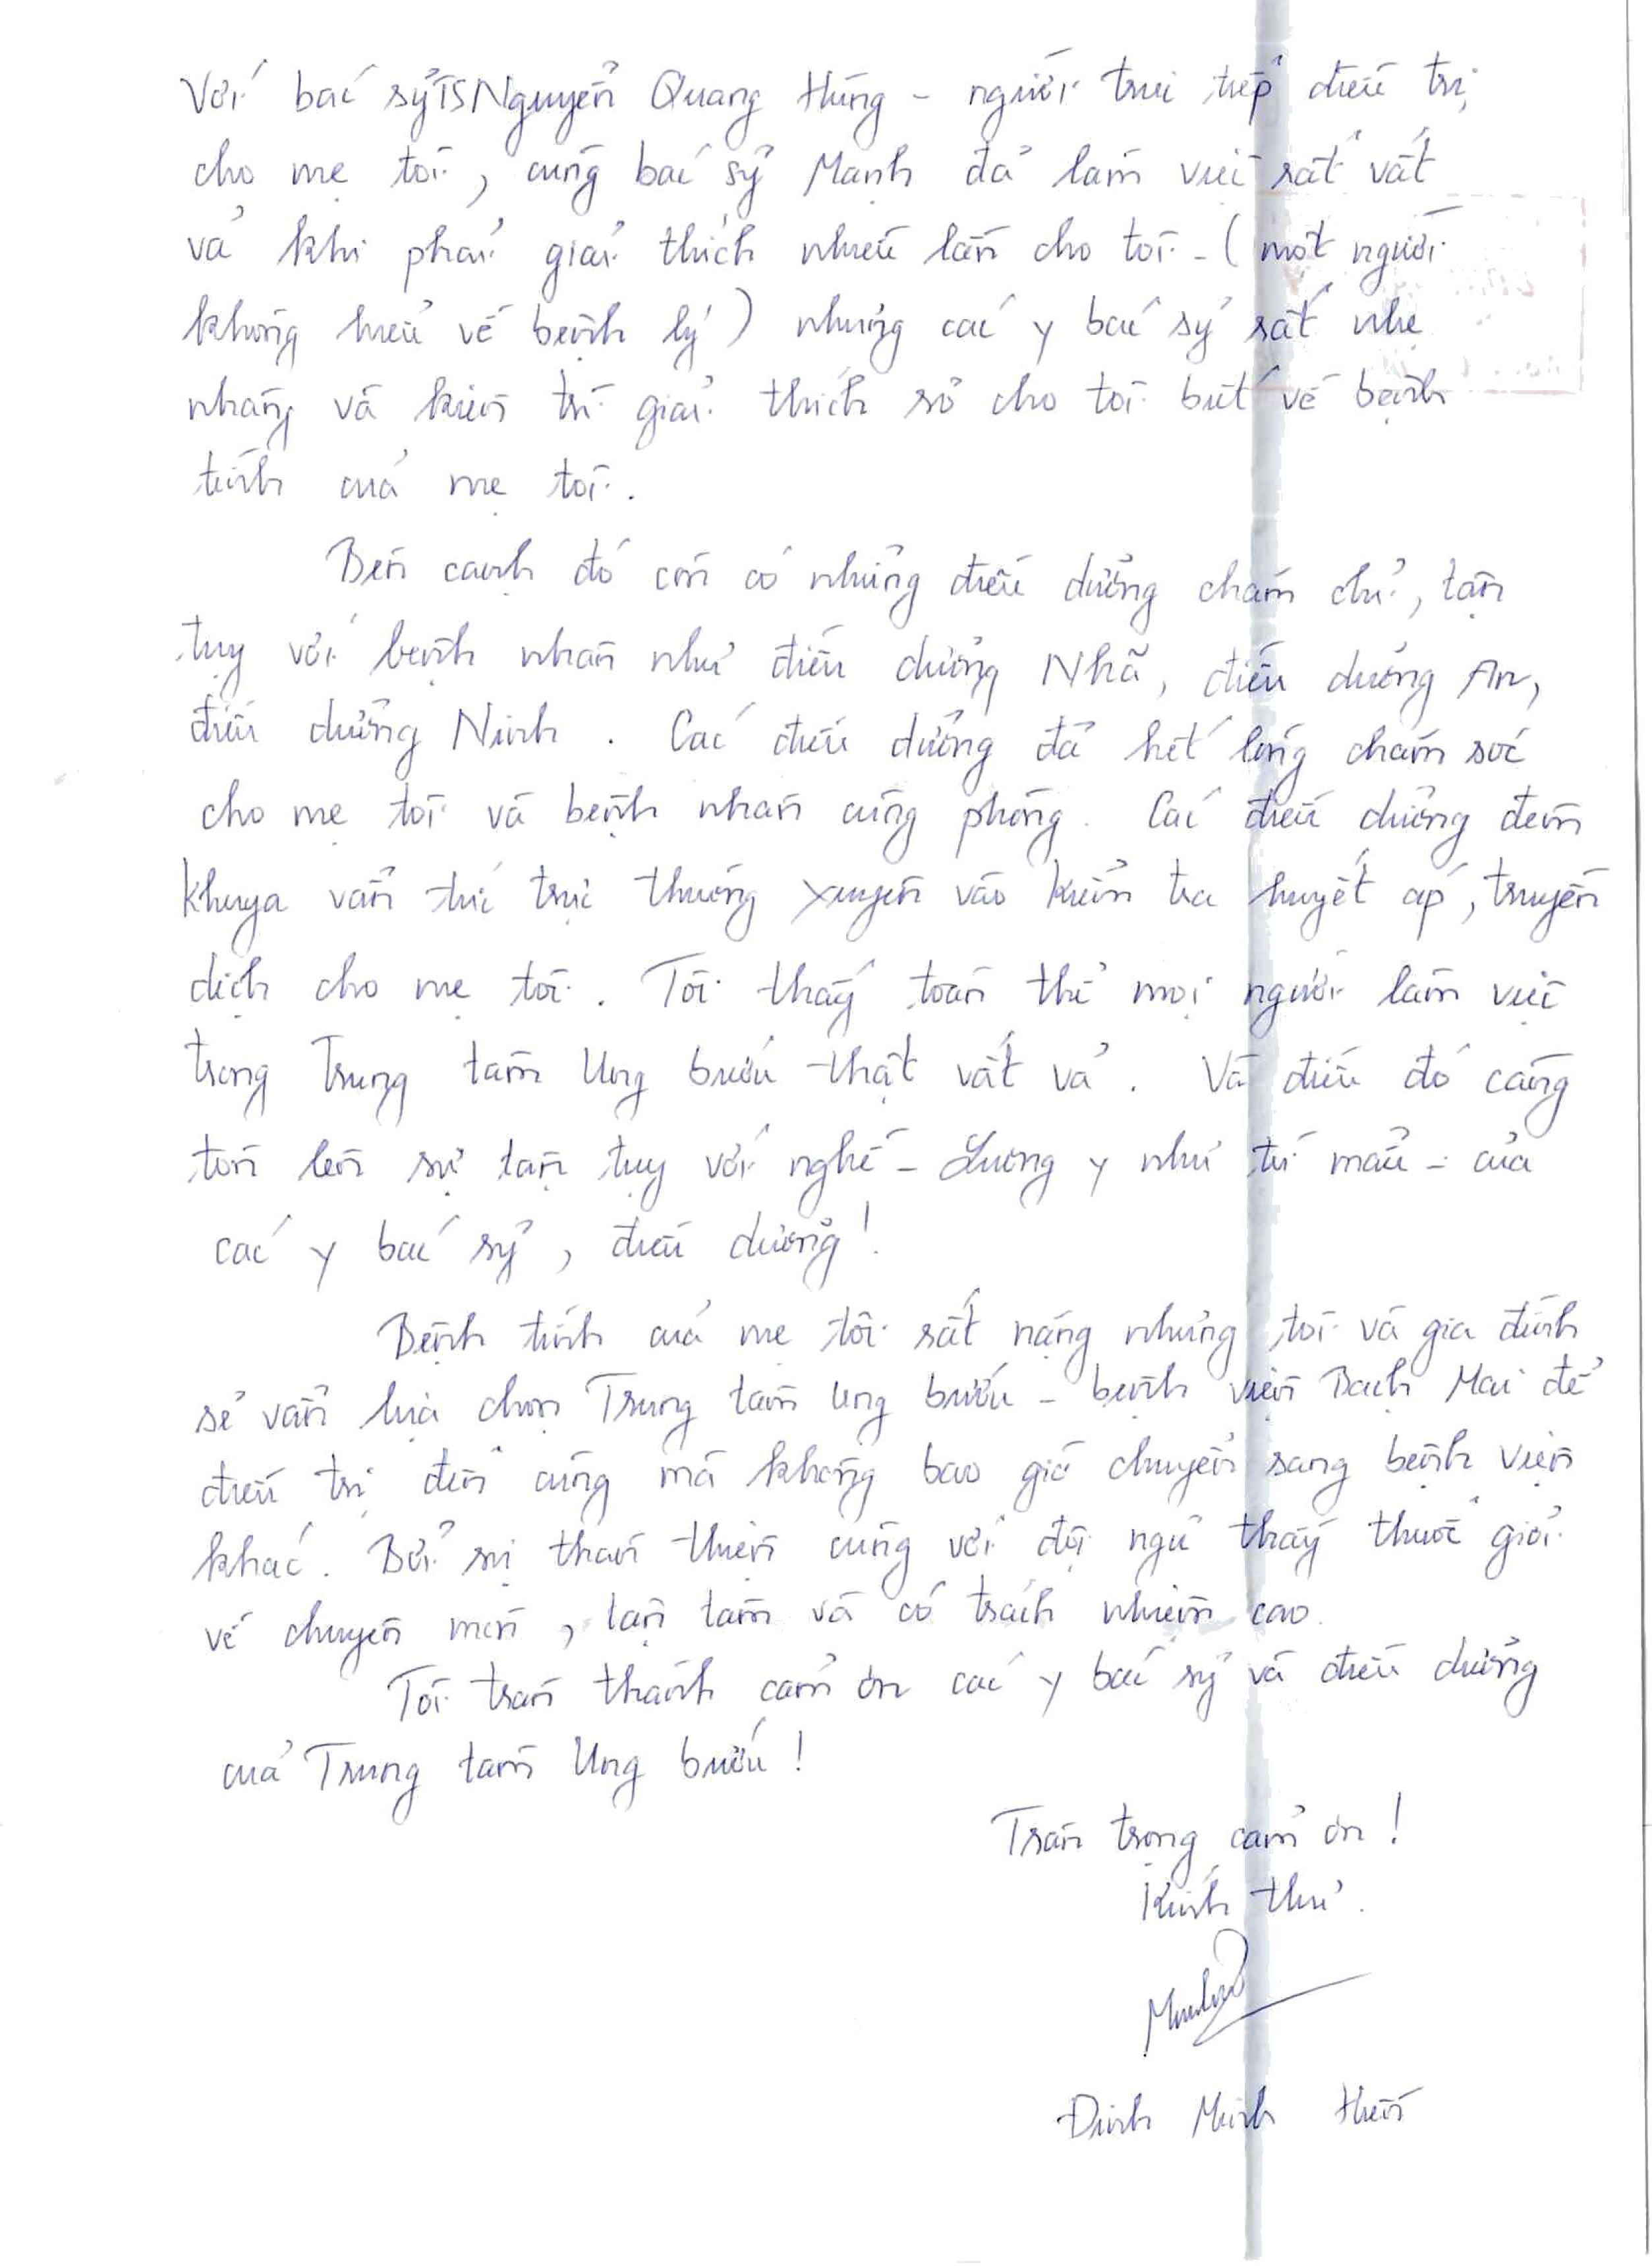 Với bác sỹ TS Nguyễn Quang Hùng - người trực tiếp điều trị
cho mẹ tôi, cùng bác sỹ Mạnh đã làm việc rất vất
vả khi phải giải thích nhiều lần cho tôi - (một người
không hiểu về bệnh lý) nhưng các y bác sỹ rất nhẹ
nhàng và kiên trì giải thích rõ cho tôi biết về bệnh
tình của mẹ tôi.
Bên cạnh đó còn có những điều dưỡng chăm chỉ, tận
tụy với bệnh nhân như điều dưỡng Nhã, điều dưỡng An,
điều dưỡng Ninh. Các điều dưỡng đã hết lòng chăm sóc
cho mẹ tôi và bệnh nhân cùng phòng. Các điều dưỡng đêm
khuya vẫn túc trực thường xuyên vào kiểm tra huyết áp, truyền
dịch cho mẹ tôi. Tôi thấy toàn thể mọi người làm việc
trong Trung tâm Ung bướu thật vất vả. Và điều đó càng
tôn lên sự tận tụy với nghề - Lương y như từ mẫu - của
các y bác sỹ, điều dưỡng!
Bệnh tình của mẹ tôi rất nặng nhưng tôi và gia đình
sẽ vẫn lựa chọn Trung tâm Ung bướu - bệnh viện Bạch Mai để
điều trị đến cùng mà không bao giờ chuyển sang bệnh viện
khác. Bởi sự thân thiện cùng với đội ngũ thầy thuốc giỏi
về chuyên môn, tận tâm và có trách nhiệm cao.
Tôi trân thành cảm ơn các y bác sỹ và điều dưỡng
của Trung tâm Ung bướu!
Trân trọng cảm ơn!
Kính thư.
Đinh Minh Hiền